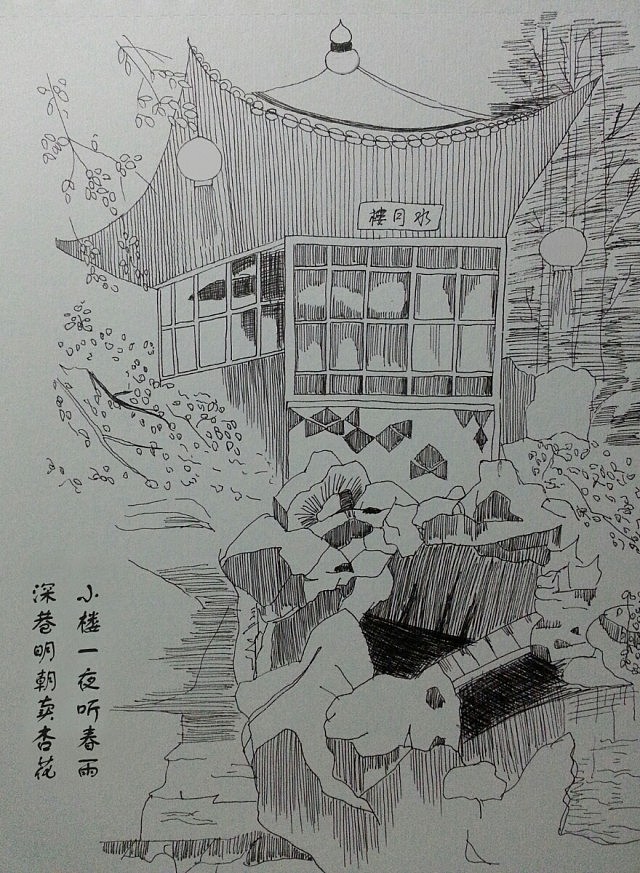 水月樓
小楼一夜听春雨
深巷明朝卖杏花